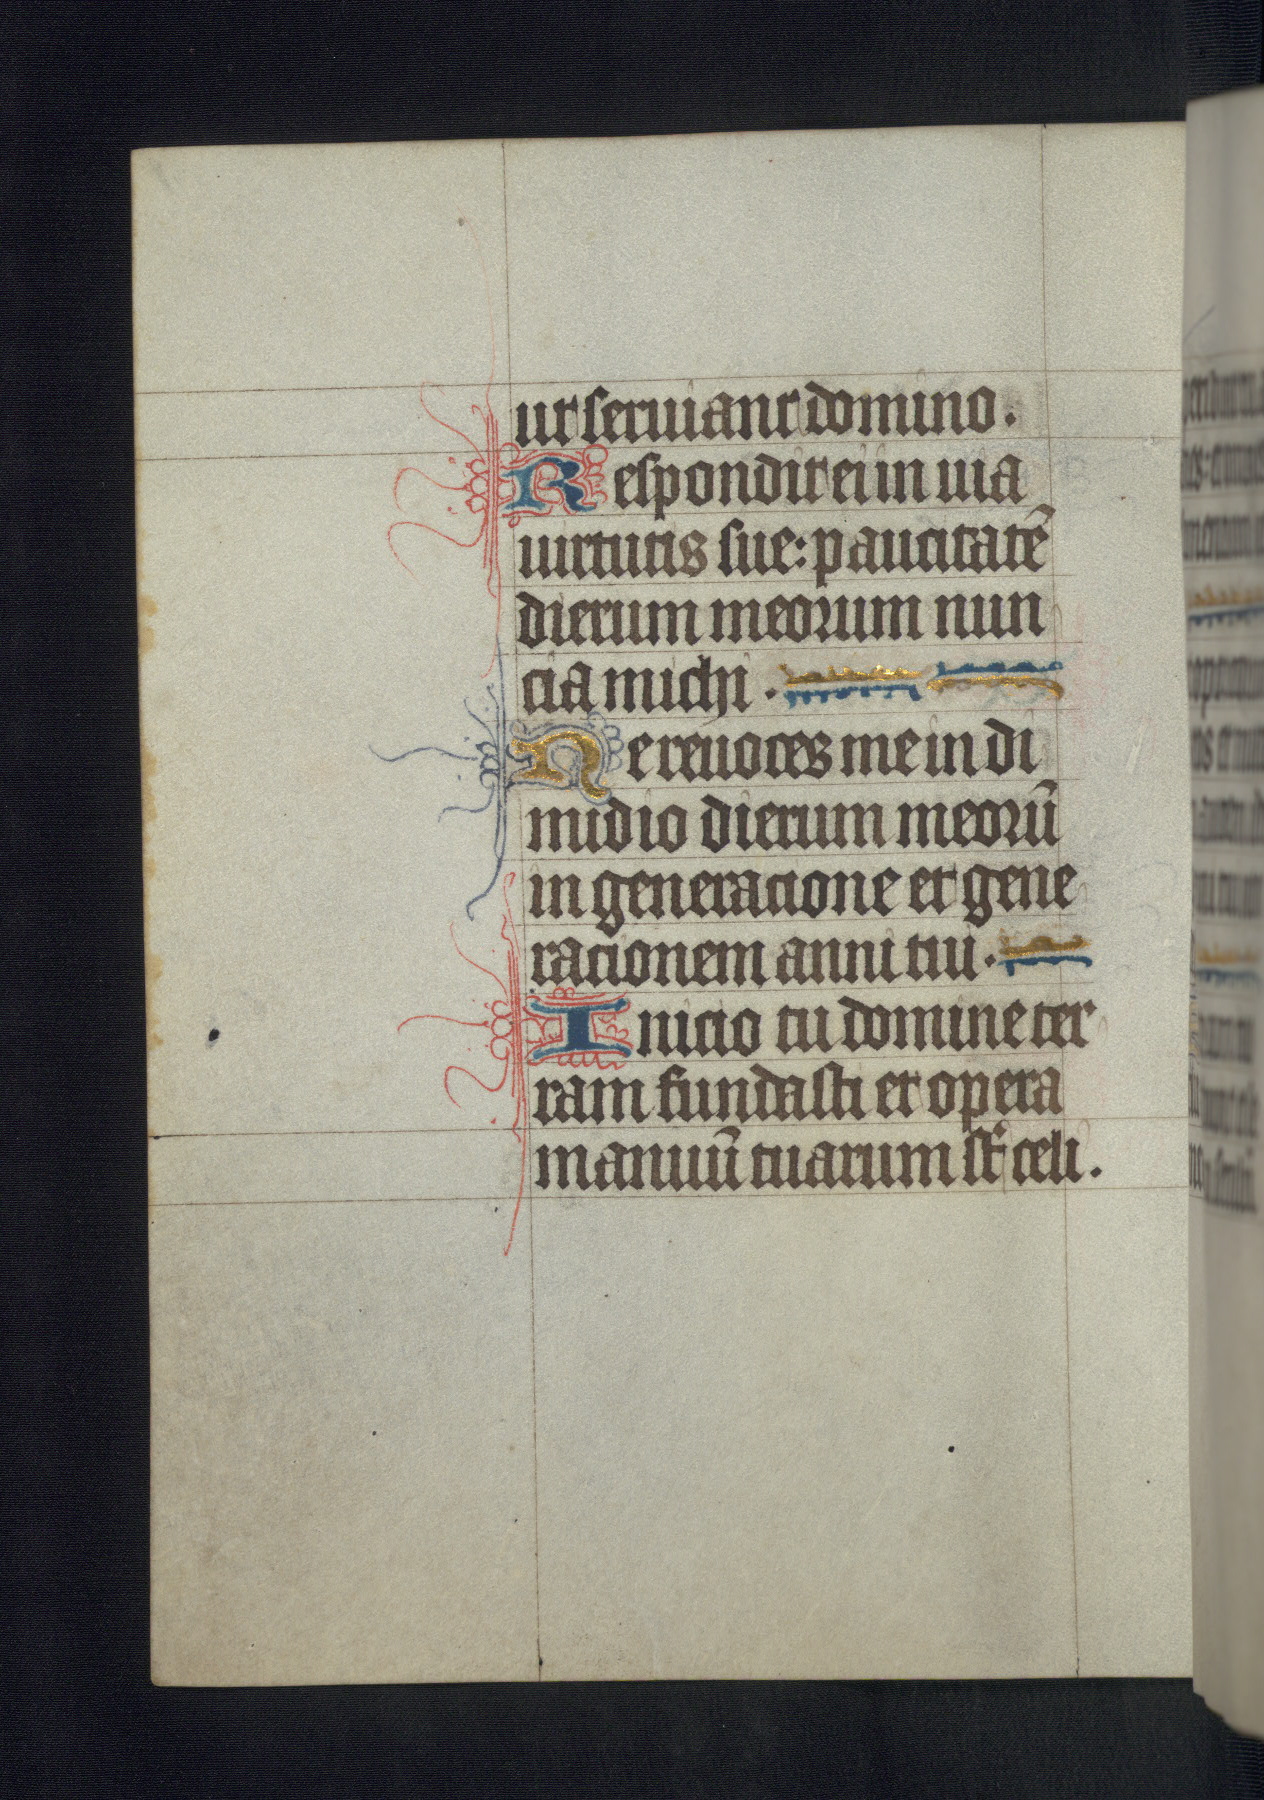 ut seruiant domino.
Respondit ei in uia
uirtutis sue: paucitatē
dierum meorum nun
cia michi.
Ne reuoces me in di
midio dierum meorū
in generacione et gene
racionem anni tui.
Inicio tu domine ter
ram fundasti et opera
manuū tuarum st̄ celi.